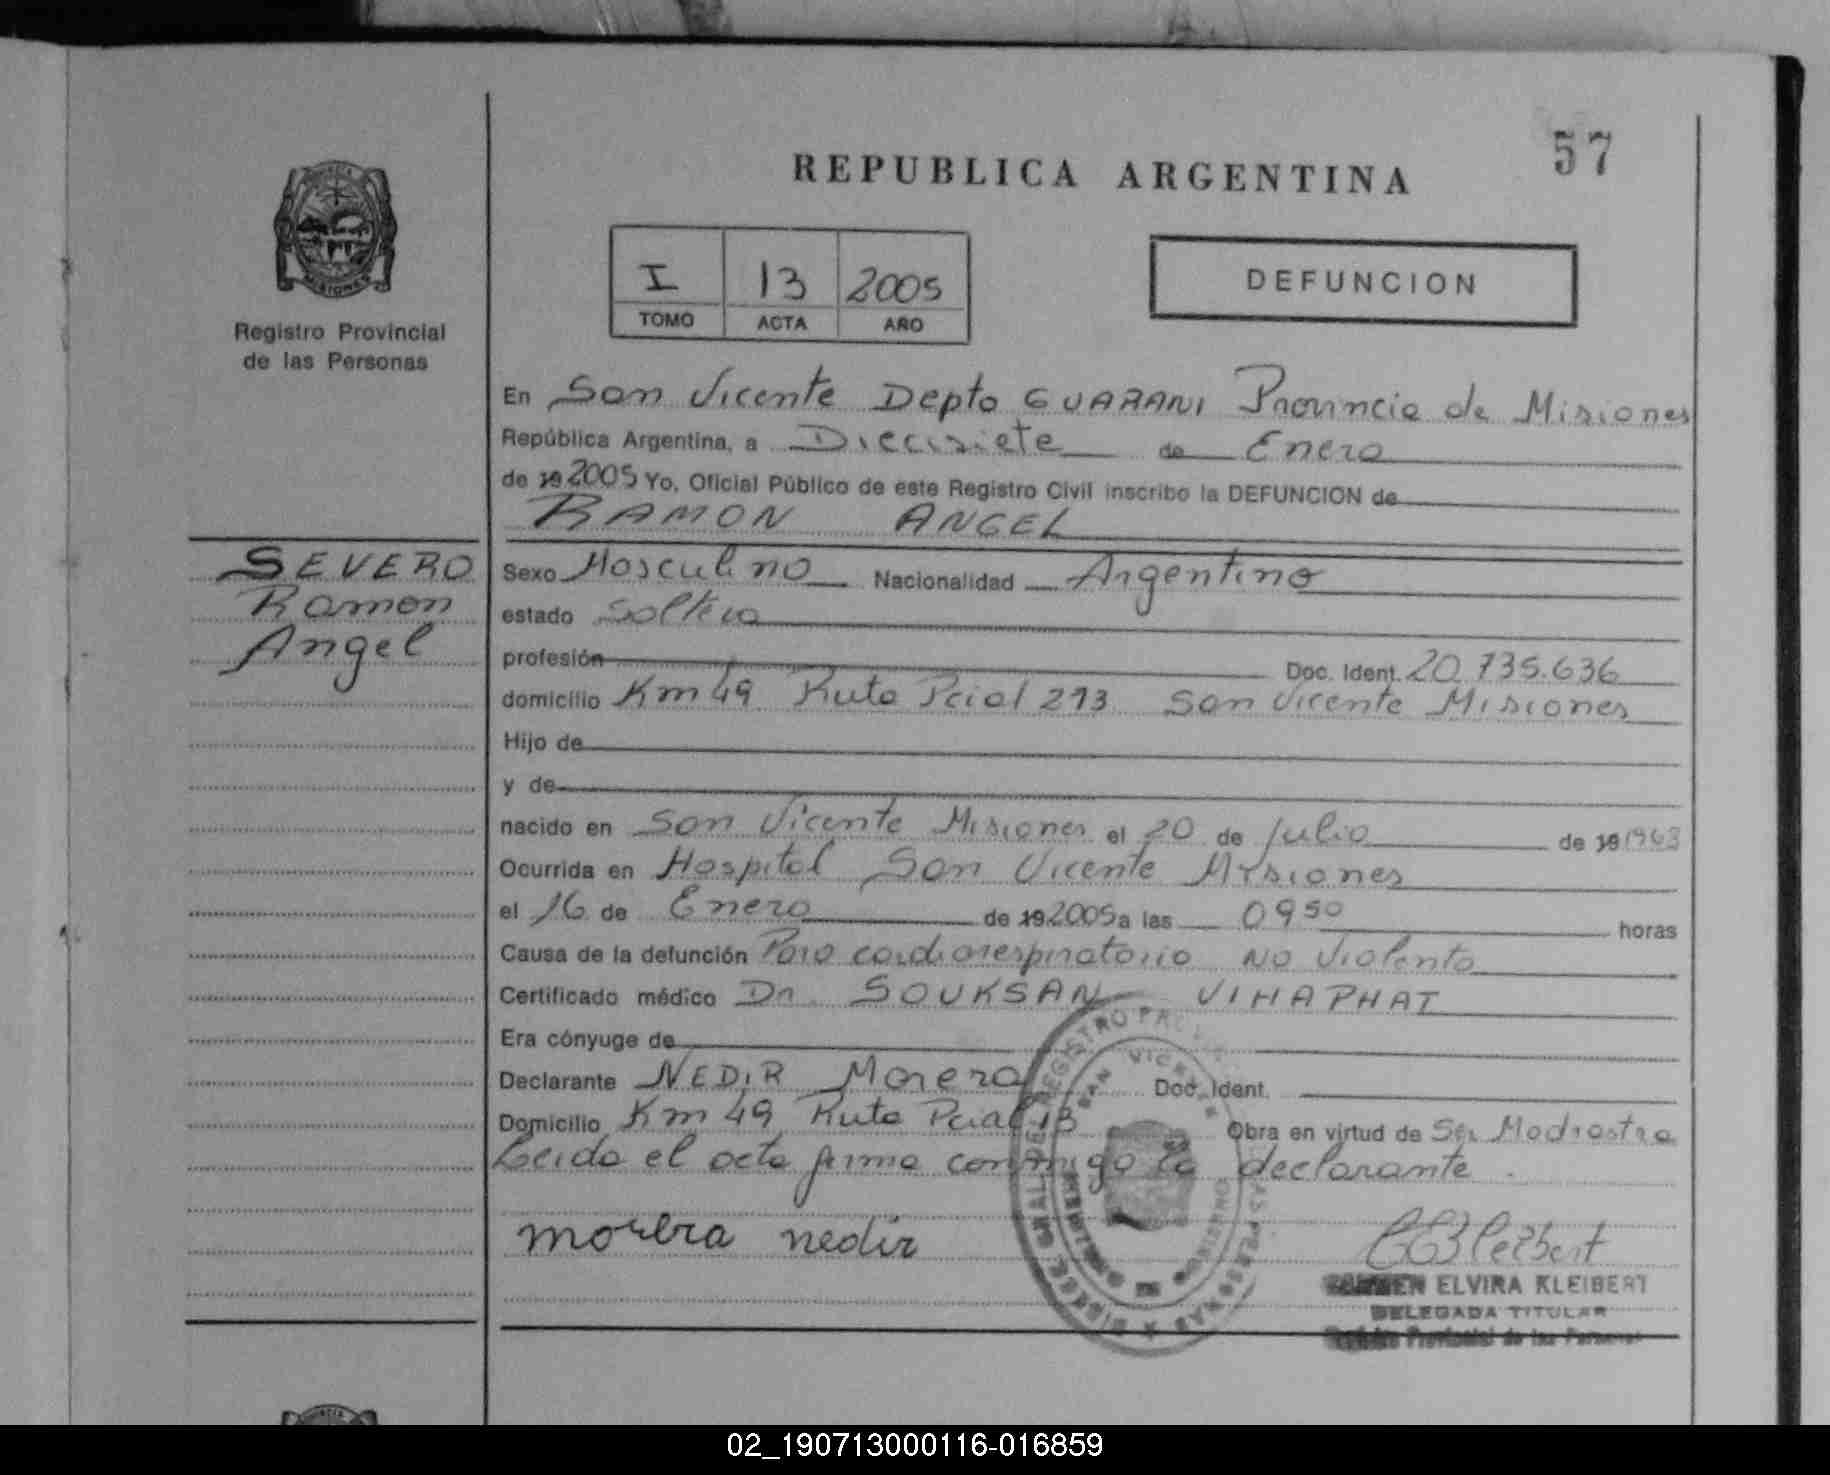 57
REPUBLICA ARGENTINA
I 13 2005
TOMO ACTA AÑO
DEFUNCION
MISIONES
Registro Provincial
de las Personas
SEVERO
Ramon
Angel
En San Vicente Depto GUARANI Provincia de Misiones
República Argentina, a Diecisiete de Enero
de 19 2005 Yo, Oficial Público de este Registro Civil inscribo la DEFUNCION de
RAMON ANGEL
Sexo Masculino Nacionalidad Argentino
estado Soltero
profesión Doc. Ident. 20.735.636
domicilio Km 49 Ruta Pcial 213 San Vicente Misiones
Hijo de
y de
nacido en San Vicente Misiones el 20 de Julio de 19 1963
Ocurrida en Hospital San Vicente Misiones
el 16 de Enero de 19 2005 a las 09 50 horas
Causa de la defunción Paro cardiorespiratorio NO Violento
Certificado médico Dr. SOUKSAN VIHAPHAT
Era cónyuge de
Declarante NEDIR Morera Doc. Ident.
Domicilio Km 49 Ruta Pcial 13 Obra en virtud de Ser Madrastra
Leida el acta firma conmigo la declarante.
morera nedir
CEKleibert
ELVIRA KLEIBERT
DELEGADA TITULAR
Provincial de las Personas
02_190713000116-016859